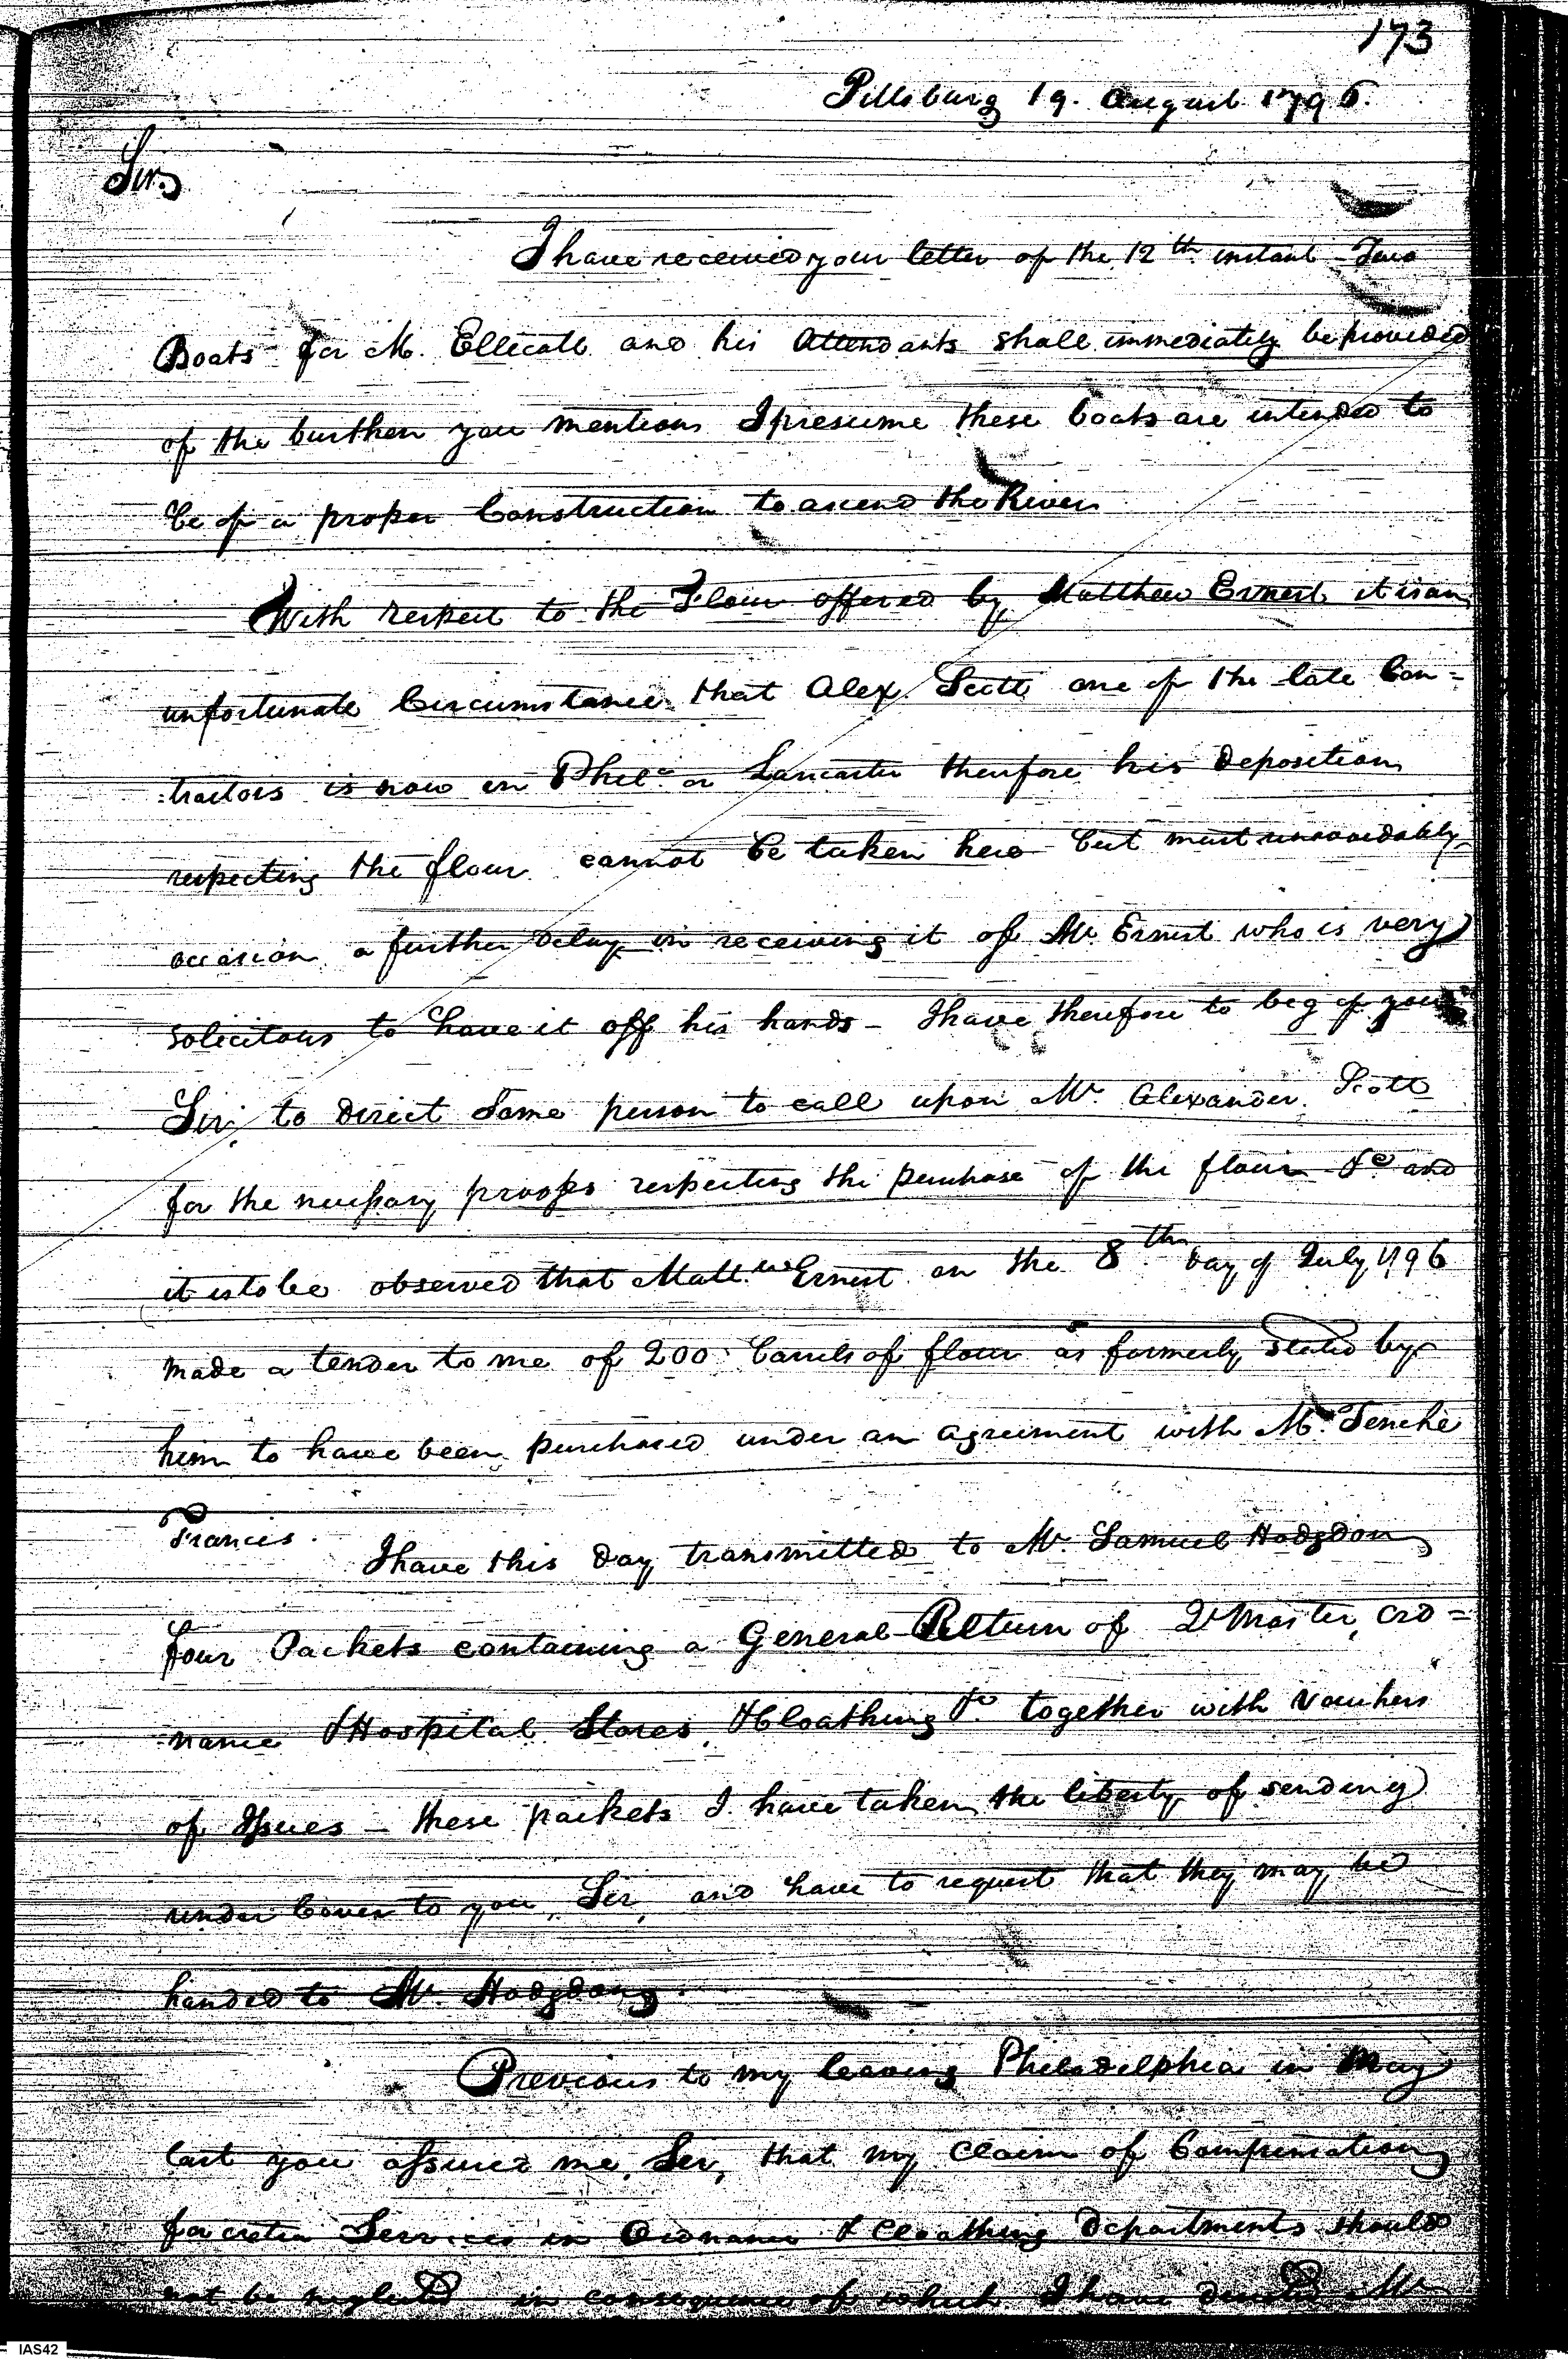 173
Pittsburg 19. August 1796.
Sir,
I have received your letter of the 12th instant - Two
Boats for M. Ellicott and his Attendants shall immediately be provided
of the burthen you mention I presume these boats are intended to
be of a proper Construction to ascend the River
With respect to the Flour offered by Matthew Ernest it is an
unfortunate Circumstance that Alex. Scott one of the late Con=
:tractors is now in Phila. or Lancaster therefore his deposition
respecting the flour cannot be taken here but must unavoidably
occasion a further delay in receiving it of Mr. Ernest who is very
solicitous to have it off his hands - I have therefore to beg of you
Sir, to direct some person to call upon Mr. Alexander Scott
for the necessary proofs respecting the purchase of the flour &c and
it is to be observed that Matt.w Ernest on the 8th day of July 1796
made a tender to me of 200 barrels of flour as formerly stated by
him to have been purchased under an agreement with Mr. Tenche
Francis. I have this day transmitted to Mr. Samuel Hodgdon
four Packets containing a General Return of Qr Master, Ord=
:nance & Hospital Stores, & Cloathing &c. together with Vouchers
of Issues - these packets I have taken the liberty of sending
under Cover to you, Sir, and have to request that they may be
handed to Mr. Hodgdon.
Previous to my leaving Philadelphia in May
last you assured me, Sir, that my Claim of Compensation
for extra Services in Ordnance & Cloathing Departments should
not be neglected in consequence of which I have Mr
IAS42